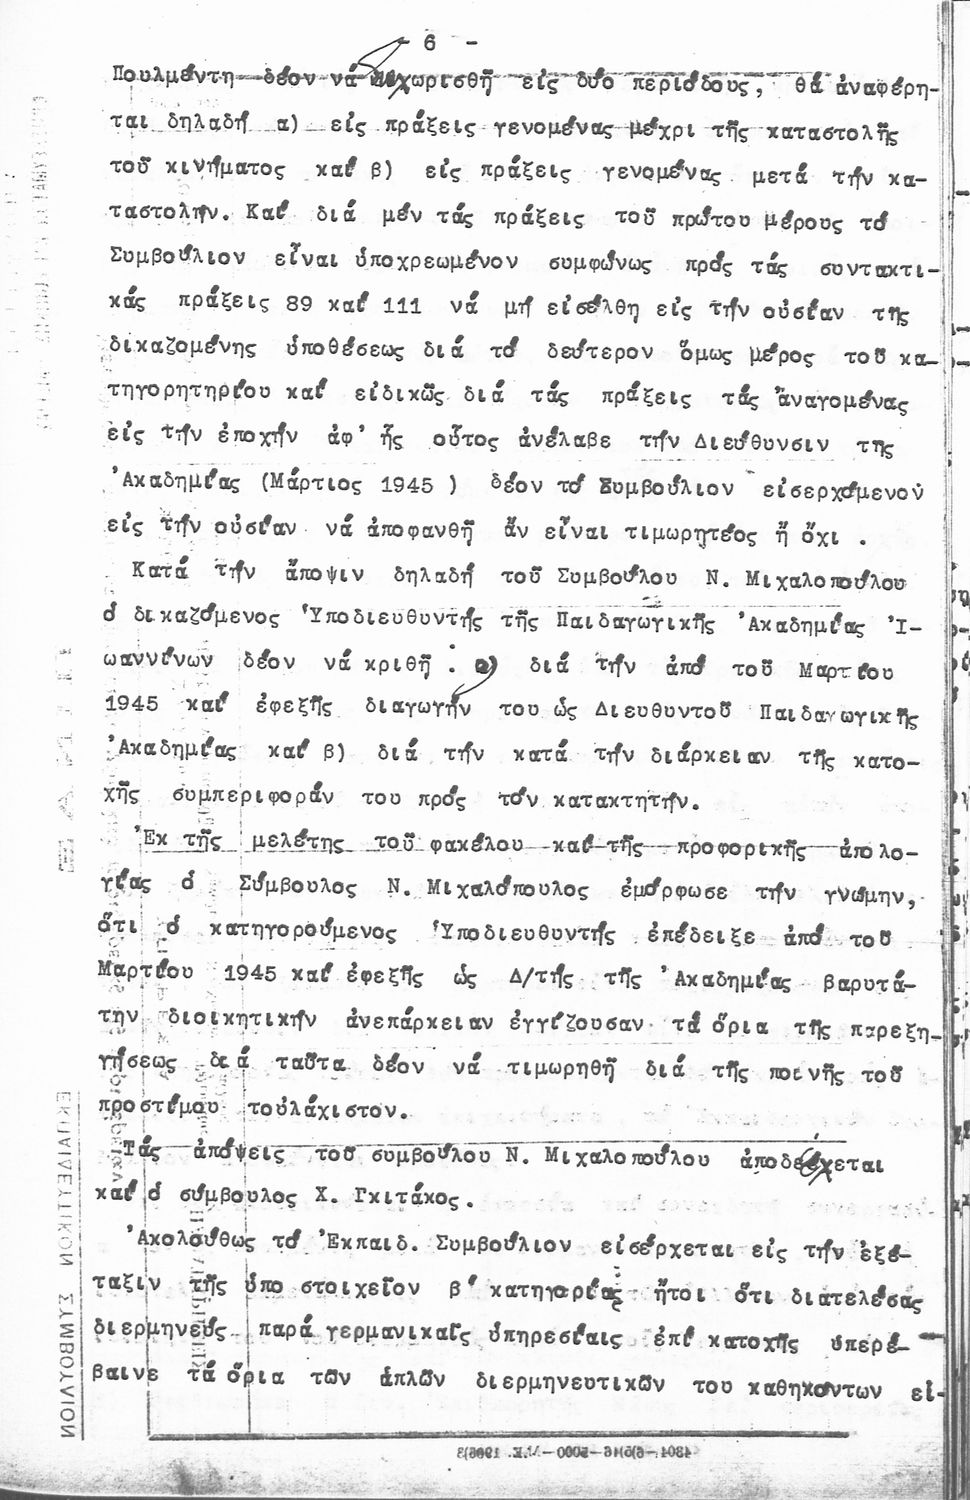 - 6 -
Πουλμέντη δέον νά χωρισθῆ εἰς δύο περιόδους, θά ἀναφέρη-
ται δηλαδή α) εἰς πράξεις γενομένας μέχρι τῆς καταστολῆς
τοῦ κινήματος καί β) εἰς πράξεις γενομένας μετά τήν κα-
ταστολήν. Καί διά μέν τάς πράξεις τοῦ πρώτου μέρους τό
Συμβούλιον εἶναι ὑποχρεωμένον συμφώνως πρός τάς συντακτι-
κάς πράξεις 89 καί 111 νά μή εἰσέλθη εἰς τήν οὐσίαν τῆς
δικαζομένης ὑποθέσεως διά τό δεύτερον ὅμως μέρος τοῦ κα-
τηγορητηρίου καί εἰδικῶς διά τάς πράξεις τάς ἀναγομένας
εἰς τήν ἐποχήν ἀφ' ἧς οὗτος ἀνέλαβε τήν Διεύθυνσιν τῆς
'Ακαδημίας (Μάρτιος 1945 ) δέον τό Συμβούλιον εἰσερχόμενον
εἰς τήν οὐσίαν νά ἀποφανθῆ ἄν εἶναι τιμωρητέος ἤ ὄχι .
Κατά τήν ἄποψιν δηλαδή τοῦ Συμβούλου Ν. Μιχαλοπούλου
ὁ δικαζόμενος Ὑποδιευθυντής τῆς Παιδαγωγικῆς 'Ακαδημίας 'Ι-
ωαννίνων δέον νά κριθῆ : α) διά τήν ἀπό τοῦ Μαρτίου
1945 καί ἐφεξῆς διαγωγήν του ὡς Διευθυντοῦ Παιδαγωγικῆς
'Ακαδημίας καί β) διά τήν κατά τήν διάρκειαν τῆς κατο-
χῆς συμπεριφοράν του πρός τόν κατακτητήν.
'Εκ τῆς μελέτης τοῦ φακέλου καί τῆς προφορικῆς ἀπολο-
γίας ὁ Σύμβουλος Ν. Μιχαλόπουλος ἐμόρφωσε τήν γνώμην,
ὅτι ὁ κατηγορούμενος Ὑποδιευθυντής ἐπέδειξε ἀπό τοῦ
Μαρτίου 1945 καί ἐφεξῆς ὡς Δ/τής τῆς 'Ακαδημίας βαρυτά-
την διοικητικήν ἀνεπάρκειαν ἐγγίζουσαν τά ὅρια τῆς παρεξη-
γήσεως διά ταῦτα δέον νά τιμωρηθῆ διά τῆς ποινῆς τοῦ
προστίμου τοὐλάχιστον.
Τάς ἀπόψεις τοῦ συμβούλου Ν. Μιχαλοπούλου ἀποδέχεται
καί ὁ σύμβουλος Χ. Γκιτάκος.
'Ακολούθως τό 'Εκπαιδ. Συμβούλιον εἰσέρχεται εἰς τήν ἐξέ-
ταξιν τῆς ὑπό στοιχεῖον β' κατηγορίας ἤτοι ὅτι διατελέσας
διερμηνεύς παρά γερμανικαῖς ὑπηρεσίαις ἐπί κατοχῆς ὑπερέ-
βαινε τά ὅρια τῶν ἁπλῶν διερμηνευτικῶν του καθηκόντων εἰ-
ΕΚΠΑΙΔΕΥΤΙΚΟΝ ΣΥΜΒΟΥΛΙΟΝ